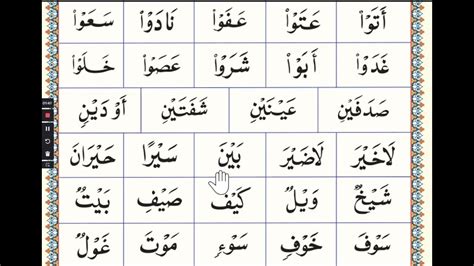 أَتَوْا عَتَوْا عَفَوْا نَادَوْا سَعَوْا
غَدَوْا أَبَوْا شَرَوْا عَصَوْا خَلَوْا
صَدَفَيْنِ عَيْنَيْنِ شَفَتَيْنِ أَوْدَيْنٍ
لَاخَيْرَ لَاضَيْرَ بَيْنَ سَيْرًا حَيْرَانَ
شَيْخٌ وَيْلٌ كَيْفَ صَيْفِ بَيْتٌ
سَوْفَ خَوْفٍ سَوْءٍ مَوْتَ غَوْلٌ